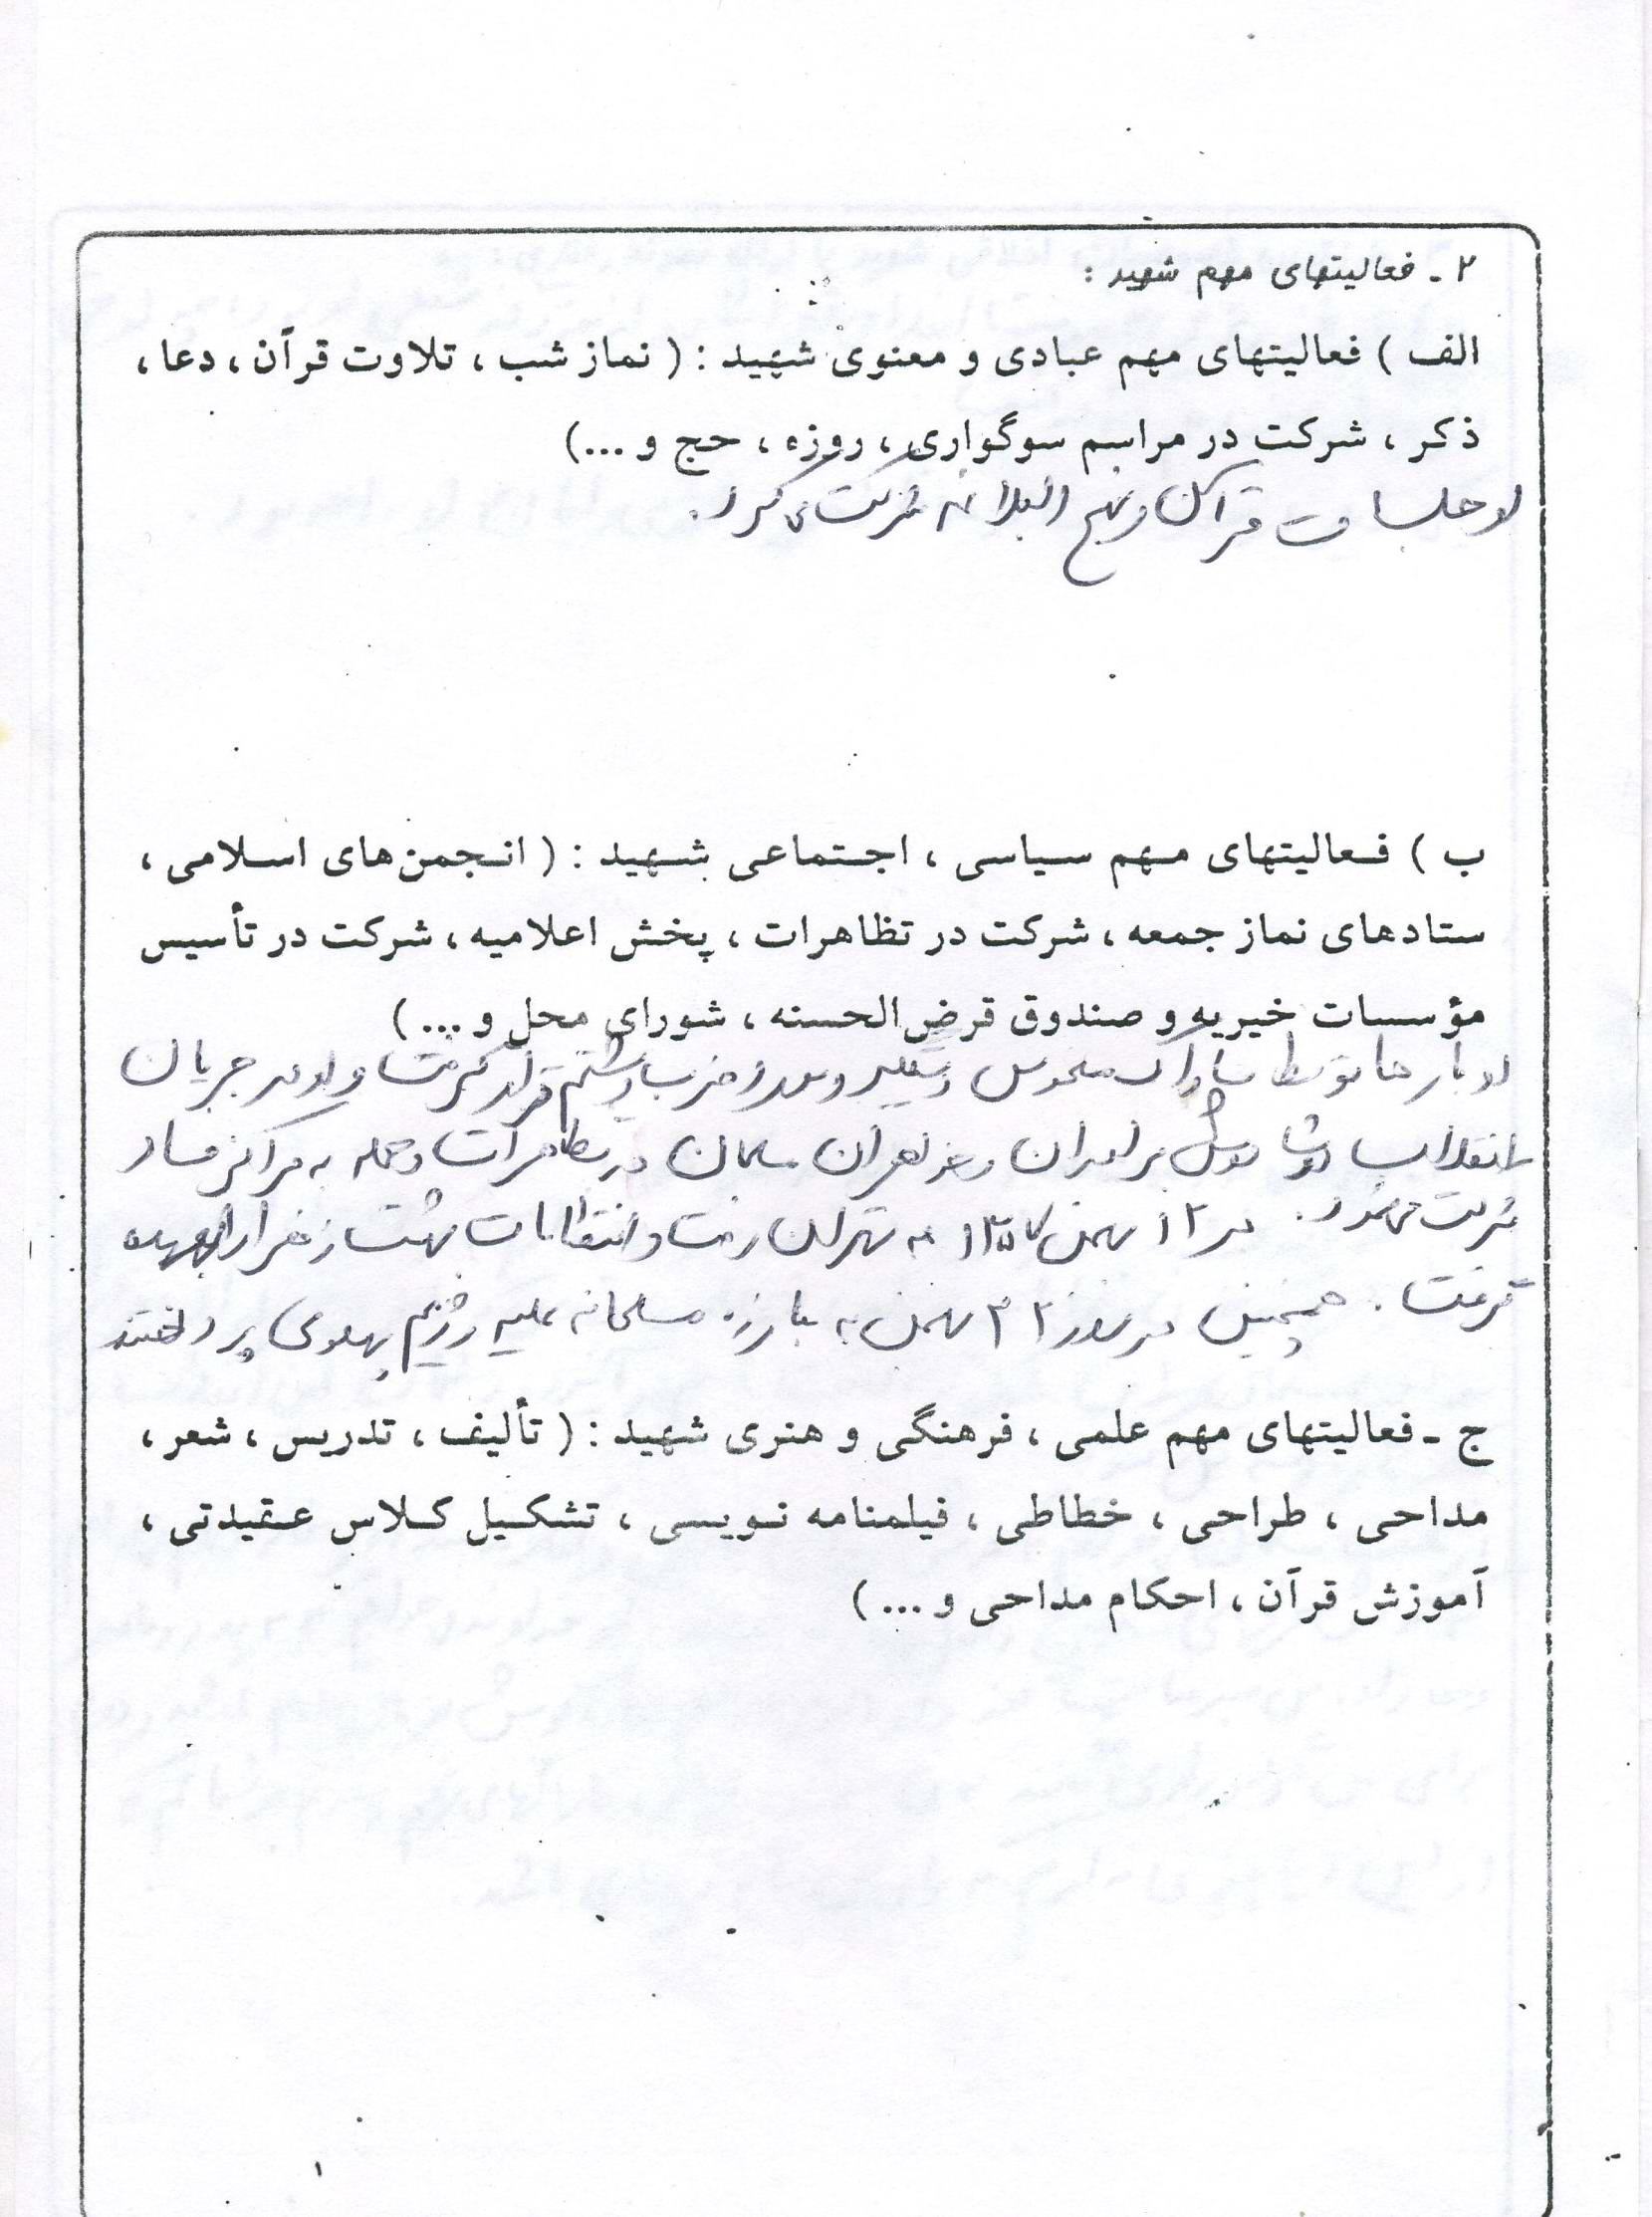 ۲ - فعالیتهای مهم شهید :
الف ) فعالیتهای مهم عبادی و معنوی شهید : ( نماز شب ، تلاوت قرآن ، دعا ،
ذکر ، شرکت در مراسم سوگواری ، روزه ، حج و ...)
او جلسات قرآن و نهج البلاغه شرکت می کرد .
ب ) فعالیتهای مهم سیاسی ، اجتماعی شهید : ( انجمن‌های اسلامی ،
ستادهای نماز جمعه ، شرکت در تظاهرات ، پخش اعلامیه ، شرکت در تأسیس
مؤسسات خیریه و صندوق قرض‌الحسنه ، شورای محل و ... )
او بارها توسط ساواک منحوس دستگیر و مورد ضرب و شتم قرار گرفت و او در جریان
انقلاب دوشا دوش برادران و خواهران مسلمان در تظاهرات و حمله به مراکز فساد
شرکت . در ۱۲ بهمن ۱۳۵۷ به تهران رفت و انتظامات بهشت زهرا را بعهده
گرفت . همچنین در روز ۲۲ بهمن به مبارزه مسلحانه علیه رژیم پهلوی پرداختند
ج - فعالیتهای مهم علمی ، فرهنگی و هنری شهید : ( تألیف ، تدریس ، شعر ،
مداحی ، طراحی ، خطاطی ، فیلمنامه نویسی ، تشکیل کلاس عقیدتی ،
آموزش قرآن ، احکام مداحی و ... )
۱